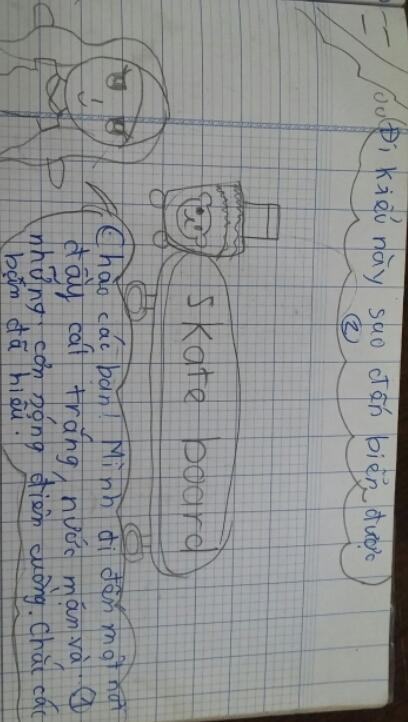 Đi kiểu này sao đến biển được
②
Skate board
Chào các bạn! Mình đi đến một nơi
đầy cát trắng, nước mặn và. ①
những cơn sóng điên cuồng. Chắc các
bạn đã hiểu.